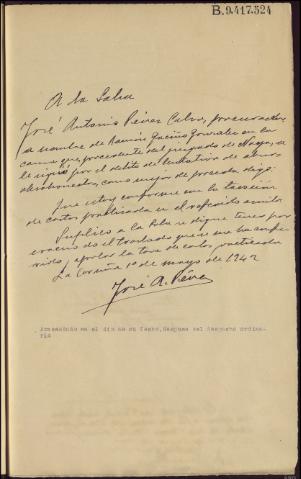 B.9.417.324
A la Sala
José Antonio Pérez Calvo, procurador,
a nombre de Ramón González en la
causa que, procedente del juzgado de Noya, se
le siguió por el delito de tentativa de
como mejor proceda digo:
Que estoy conforme con la tasación
de costas practicada en el referido
Suplico a la Sala se digne tener por
evacuado el traslado que se me ha
y aprobar la tasa de costas practicada
La Coruña 10 de mayo de 1942
José A. Pérez
en el dia de su fecha, despues del despacho ordina-
rio